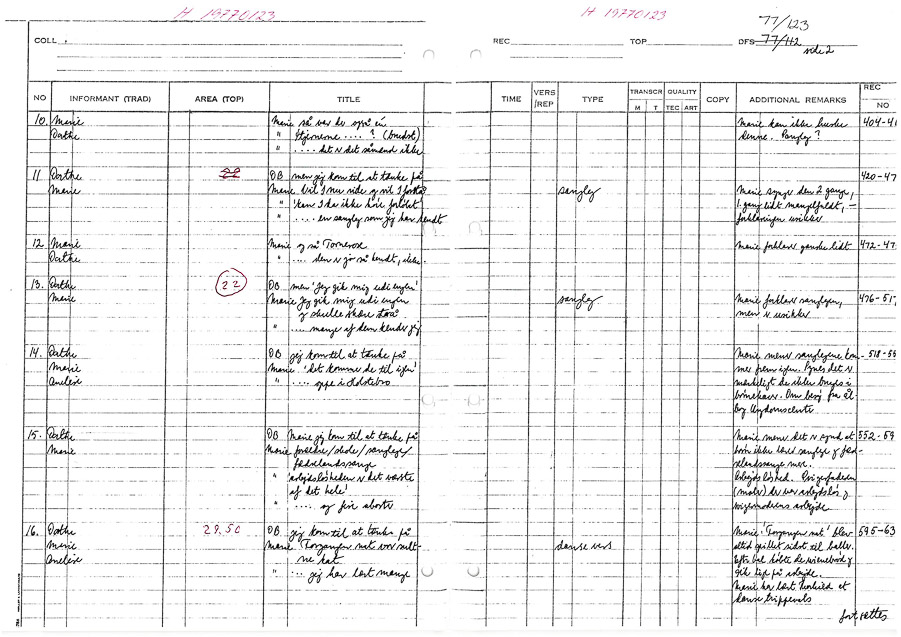 H 19770123
H 19770123
77/123
77/112
side 2
COLL.
REC
TOP
DFS
NO
INFORMANT (TRAD)
AREA (TOP)
TITLE
TIME
VERS /REP
TYPE
TRANSCR
M T
QUALITY
TEC ART
COPY
ADDITIONAL REMARKS
REC NO
10. Marie
Marie så var der også en
Marie kan ikke huske
404-4
Dorthe
" Stjernerne .... ? (brudst)
denne. Sangleg?
" .... det er det såmænd ikke
11 Dorthe
22
DB men jeg kom til at tænke på
420-47
Marie
Marie Vil I nu vide og vil I forstå?
sangleg
Marie synger den 2 gange,
" Kan I da ikke høre foråret
1. gang lidt mangelfuldt, -
" .... en sangleg som jeg har kendt
forklaringen usikker
12 Marie
Marie og så Tornerose
Marie forklarer ganske lidt
472-47
Dorthe
" .... den er jo så kendt,
13. Dorthe
22
DB men 'Jeg gik mig udi engen'
476-51
Marie
Marie Jeg gik mig udi engen
sangleg
Marie forklarer sanglegen,
og skulle skære strå
men er usikker
" .... mange af dem kender jeg
14. Dorthe
DB jeg kom til at tænke på
Marie mener sanglegene kom-
518-55
Marie
Marie 'det komme de til igen'
mer frem igen. Synes det er
Anelise
" .... oppe i Holstebro
mærkeligt de ikke bruges i
børnehaver. Om besøg fra Ål-
borg Ungdomscenter
15. Dorthe
DB Marie jeg kom til at tænke på
Marie mener det er synd at
552-59
Marie
Marie forældre/skole/sanglege
børn ikke lærer sanglege og fæd-
fædrelandssange
relandssange mer.
" 'arbejdsløsheden er det værste
Arbejdsløshed.
af det hele'
de var arbejdsløs og
" .... og fri aborter
arbejde
16. Dorthe
29.50
DB jeg kom til at tænke på
Marie: 'Forgangen nat' blev
595-63
Marie
Marie 'Forgangen nat vor sult-
dansevers
altid spillet sidst til baller.
Anelise
ne kat
Efter bal købte de wienerbrød og
" .... jeg har lært mange
gik lige på arbejde.
Marie har lært at
danse trippevals
fortsættes